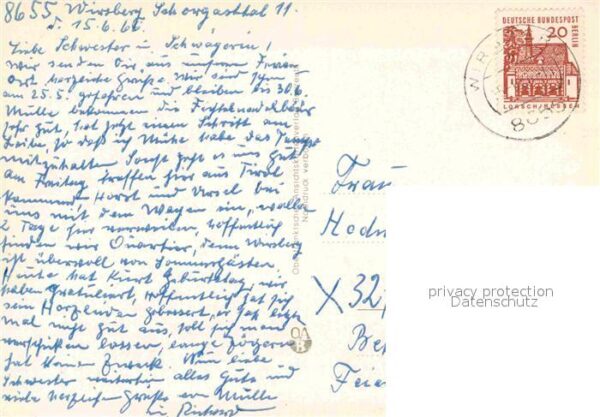 8655 Wirsberg Schorgasttal 11.
d. 15.6.66.
Liebe Schwester u. Schwägerin!
Wir senden Dir aus unserem
Ort herzliche Grüße. Wir sind schon
am 25.5. gefahren und bleiben bis 30.6.
Mülle bekommen die
sehr gut, hat jetzt einen Schritt am
Leibe, so daß ich Mühe habe das Tempo
mitzuhalten. Sonst geht es uns gut.
Am Freitag treffen hier aus Tirol
kommend Horst und Ursel bei
uns mit dem Wagen ein, wollen
2 Tage hier verweilen, hoffentlich
finden wir Quartier, denn Wirsberg
ist übervoll von Sommergästen.
Heute hat Kurt Geburtstag, wir
haben gratuliert, hoffentlich hat sich
sein Herzleiden gebessert, er sah letzt
mal nicht gut aus, soll sich mal
verschicken lassen, lange zögern
hat keinen Zweck. Nun liebe
Schwester weiterhin alles Gute und
viele herzliche Grüße von Mülle
u. Richard
DEUTSCHE BUNDESPOST
BERLIN
20
LORSCH/HESSEN
Frau
X 32
Be
Feie
Nachdruck verboten
privacy protection
Datenschutz